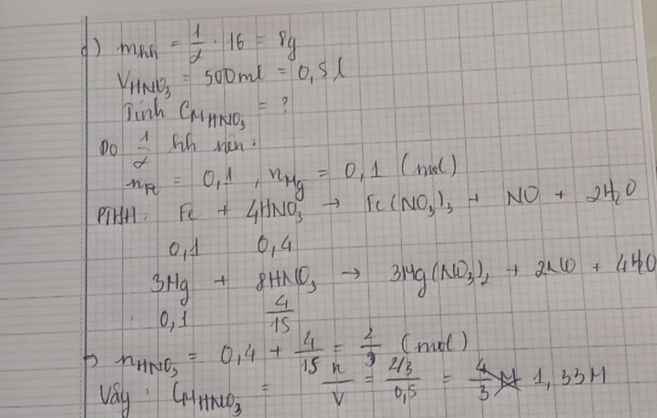 d) mhh = 1/2 . 16 = 8g
VHNO3 = 500ml = 0,5 l
Tính CM HNO3 = ?
Do 1/2 hh nên:
nFe = 0,1 , nMg = 0,1 (mol)
PTHH: Fe + 4HNO3 → Fe(NO3)3 + NO + 2H2O
0,1 0,4
3Mg + 8HNO3 → 3Mg(NO3)2 + 2NO + 4H2O
0,1 4/15
→ nHNO3 = 0,4 + 4/15 = 2/3 (mol)
Vậy: CM HNO3 = n/V = 2/3/0,5 = 4/3 M 1,33M